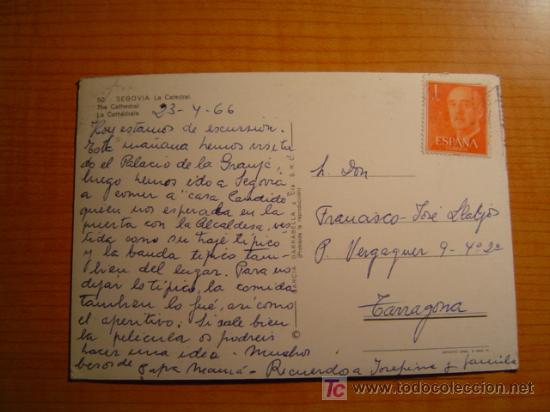 50 SEGOVIA La Catedral.
The Cathedral
La Cathédrale
23-4-66
Hoy estamos de excursión.
Esta mañana hemos visita
do el Palacio de la Granja,
luego hemos ido a Segovia
a comer a "casa Candido"
quien nos esperaba en la
puerta con la alcaldesa, ves
tida como su traje típico
y la banda típico tam-
bien del lugar. Para no
dejar lo típico, la comida
tambien lo fué, así como
el aperitivo. Si sale bien
la pelicula os podreis
hacer una idea. Muchos
besos de Papa Mamá - Recuerdos a Josefina y familia
GARCIA GARRABELLA
(Prohibida la reproducción)
1
ESPAÑA
S. Don
Francisco-José
P. Verdaguer 9-4º 2ª
Tarragona
TC todocoleccion
www.todocoleccion.net